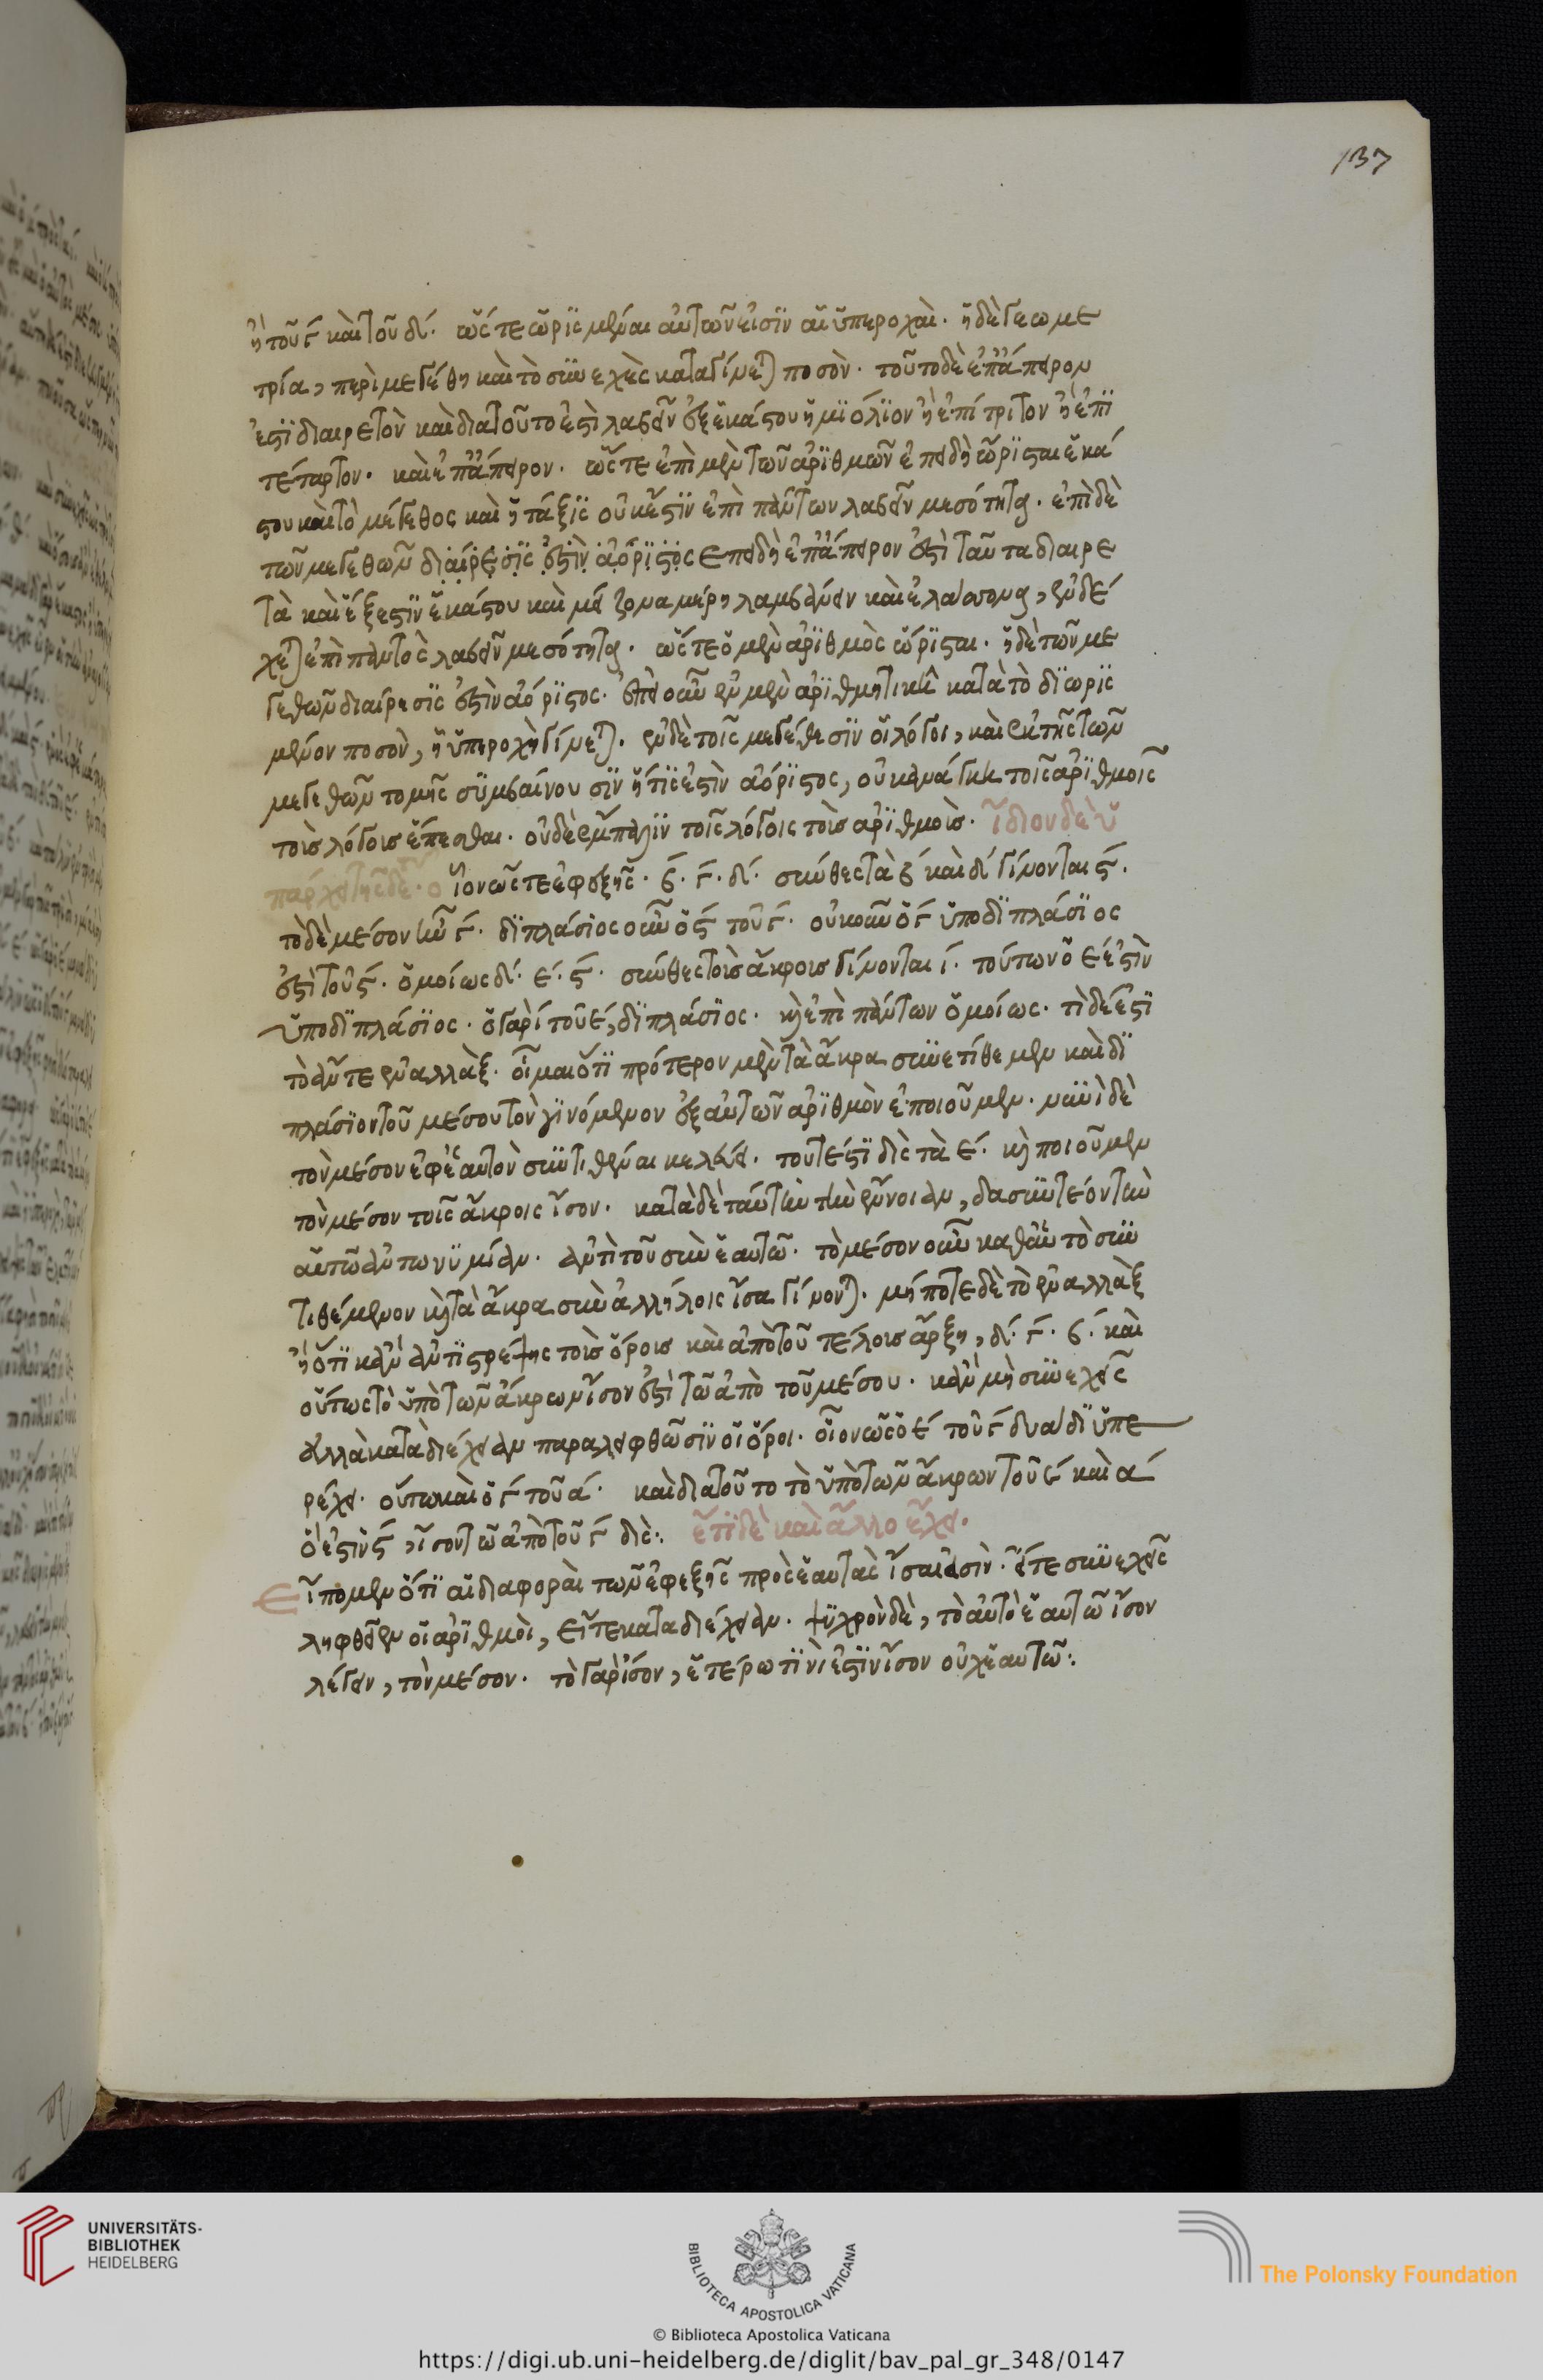 137
ἢ τοῦ γ καὶ τοῦ δ´. ὥστε ὡρισμέναι αὐτῶν εἰσὶν αἱ ὑπεροχαί. ἡ δὲ γεωμε
τρία, περὶ μεγέθη καὶ τὸ συνεχὲς καταγίνεται ποσόν. τοῦτο δὲ ἐπ' ἄπειρον
ἐστὶ διαιρετὸν καὶ διὰ τοῦτο ἐστὶ λαβεῖν ἐξ ἑκάστου ἡμιόλιον ἢ ἐπίτριτον ἢ ἐπι
τέταρτον. καὶ ἐπ' ἄπειρον. ὥστε ἐπὶ μὲν τῶν ἀριθμῶν ἐπειδὴ ὥρισται ἑκά
στου καὶ τὸ μέγεθος καὶ ἡ τάξις οὐκ ἔστιν ἐπὶ πάντων λαβεῖν μεσότητα. ἐπὶ δὲ
τῶν μεγεθῶν διαίρεσις ἐστὶν ἀόριστος ἐπειδὴ ἐπ' ἄπειρον ἐστὶ ταῦτα διαιρε
τὰ καὶ ἔξεστιν ἑκάστου καὶ μείζονα μέρη λαμβάνειν καὶ ἐλάττονα, ἐνδέ
χεται ἐπὶ παντὸς λαβεῖν μεσότητα. ὥστε ὁ μὲν ἀριθμὸς ὥρισται. ἡ δὲ τῶν με
γεθῶν διαίρεσις ἐστὶν ἀόριστος. ἐπεὶ οὖν ἐν μὲν ἀριθμητικῇ κατὰ τὸ διωρισ
μένον ποσὸν, ἡ ὑπεροχὴ γίνεται. ἐν δὲ τοῖς μεγέθεσιν οἱ λόγοι, καὶ ἐκ τῆς τῶν
μεγεθῶν τομῆς συμβαίνουσιν ἥτις ἐστὶν ἀόριστος, οὐκ ἀνάγκη τοῖς ἀριθμοῖς
τοῖς λόγοις ἕπεσθαι. οὐδὲ ἔμπαλιν τοῖς λόγοις τοῖς ἀριθμοῖς. ἴδιον δὲ ὑ
πάρχει τῆσδε. οἷον ὥστε ἐφεξῆς. β. γ. δ´. σύνθες τὰ β καὶ δ´ γίνονται ς´.
τὸ δὲ μέσον ἦν γ. διπλάσιος οὖν ὁ ς τοῦ γ. οὐκοῦν ὁ γ ὑποδιπλάσιος
ἐστὶ τοῦ ς. ὁμοίως δ´. ε´. ς. σύνθες τοὺς ἄκρους γίνονται ι´. τούτων ὁ ε´ ἐστὶν
ὑποδιπλάσιος. ὁ γὰρ ι´ τοῦ ε´, διπλάσιος. καὶ ἐπὶ πάντων ὁμοίως. τί δέ ἐστι
τὸ ἄν τε ἐναλλάξ. οἶμαι ὅτι πρότερον μὲν τὰ ἄκρα συνετίθεμεν καὶ δι
πλάσιον τοῦ μέσου τὸν γινόμενον ἐξ αὐτῶν ἀριθμὸν ἐποιοῦμεν. νυνὶ δὲ
τὸν μέσον ἐφ' ἑαυτὸν συντιθέναι κελεύει. τουτέστι δὶς τὰ ε´. καὶ ποιοῦμεν
τὸν μέσον τοῖς ἄκροις ἴσον. κατὰ δὲ ταύτην τὴν ἔννοιαν, δασυντέον τὴν
αὑτῷ ἀντωνυμίαν. ἀντὶ τοῦ σὺν ἑαυτῷ. τὸ μέσον οὖν καθ' αὑτὸ συν
τιθέμενον καὶ τὰ ἄκρα σὺν ἀλλήλοις ἴσα γίνονται. μήποτε δὲ τὸ ἐναλλὰξ
ἢ ὅτι κἂν ἀντιστρέψῃς τοὺς ὅρους καὶ ἀπὸ τοῦ τέλους ἄρξῃ, δ´. γ. β. καὶ
οὕτως τὸ ὑπὸ τῶν ἄκρων ἴσον ἐστὶ τῶ ἀπὸ τοῦ μέσου. κἂν μὴ συνεχεῖς
ἀλλὰ κατὰ διέχειαν παραληφθῶσιν οἱ ὅροι. οἷον ὡς ὁ ε´ τοῦ γ δυάδι ὑπε
ρέχει. οὕτω καὶ ὁ γ τοῦ α´. καὶ διὰ τοῦτο τὸ ὑπὸ τῶν ἄκρων τοῦ ε´ καὶ α´
ὅ ἐστὶν ς, ἴσον τῶ ἀπὸ τοῦ γ δίς: ἔτι δὲ καὶ ἄλλο ἔχει.
Εἴπομεν ὅτι αἱ διαφοραὶ τῶν ἐφεξῆς πρὸς ἑαυτὰς ἴσαι εἰσὶν. εἴτε συνεχεῖς
ληφθεῖεν οἱ ἀριθμοὶ, εἴτε κατὰ διέχειαν. ψυχρὸν δὲ, τὸ αὐτὸ ἑαυτῶ ἴσον
λέγειν, τὸν μέσον. τὸ γὰρ ἴσον, ἑτέρω τινὶ ἐστὶν ἴσον οὐχ ἑαυτῶ:
UNIVERSITÄTS-
BIBLIOTHEK
HEIDELBERG
BIBLIOTECA APOSTOLICA VATICANA
The Polonsky Foundation
© Biblioteca Apostolica Vaticana
https://digi.ub.uni-heidelberg.de/diglit/bav_pal_gr_348/0147